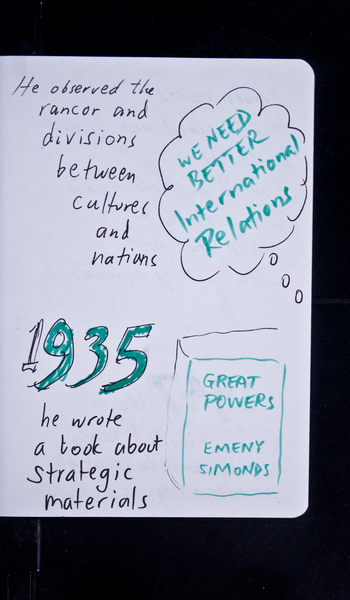 He observed the
rancor and
divisions
between
cultures
and
nations
WE NEED
BETTER
International
Relations
1935
he wrote
a book about
strategic
materials
GREAT
POWERS
EMENY
SIMONDS